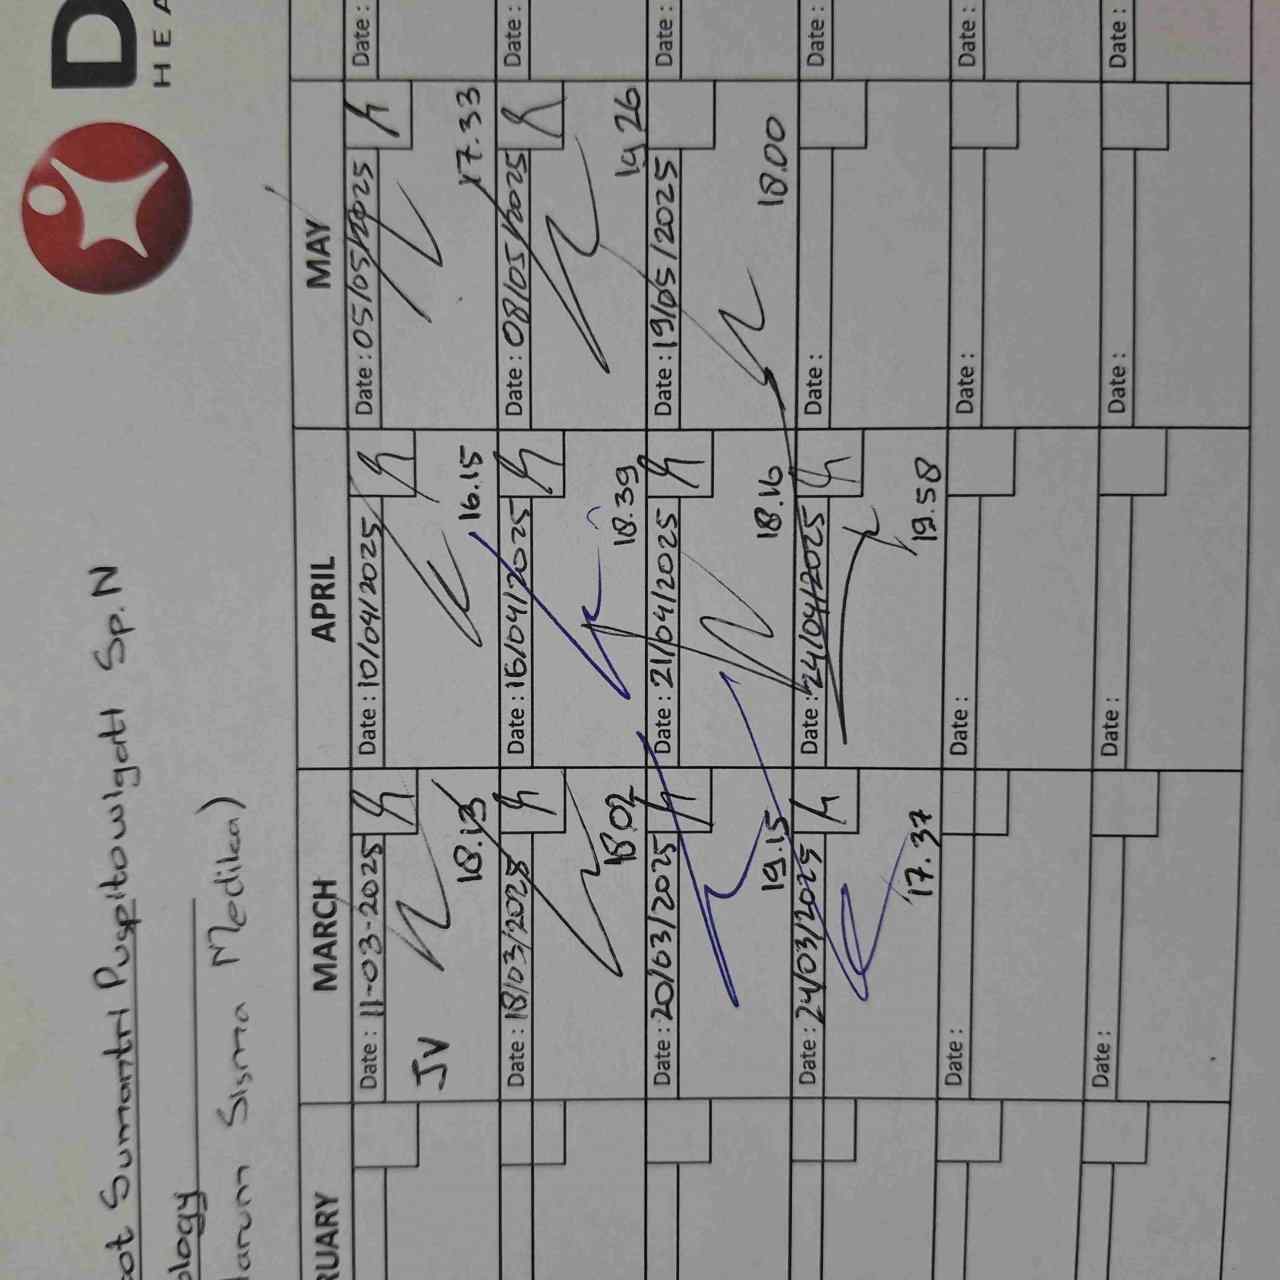 D
HEA
oot Sumantri Puspitowigati Sp.N
ology
arum Sisma Medika)
RUARY MARCH APRIL MAY
Date : 11-03-2025
JV
18.13
Date : 10/04/2025
16.15
Date : 05/05/2025
17.33
Date :
Date : 18/03/2025
18.02
Date : 16/04/2025
18.39
Date : 08/05/2025
19 26
Date :
Date : 20/03/2025
19.15
Date : 21/04/2025
18.16
Date : 19/05/2025
18.00
Date :
Date : 24/03/2025
17.37
Date : 24/04/2025
19.58
Date :
Date :
Date :
Date :
Date :
Date :
Date :
Date :
Date :
Date :